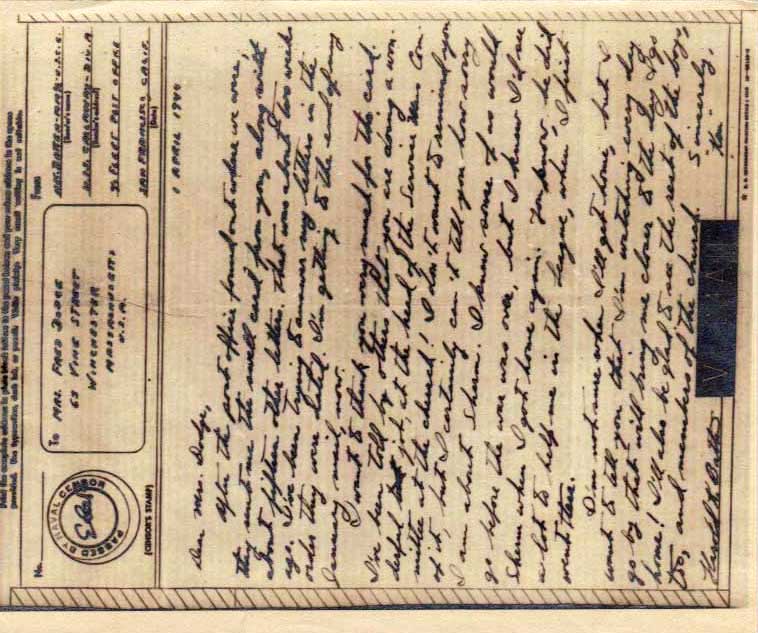 Print the complete address in plain block letters in the panel below, and your return address in the space
provided. Use typewriter, dark ink, or pencil. Write plainly. Very small writing is not suitable.
No.
PASSED BY NAVAL CENSOR
(CENSOR'S STAMP)
To MRS. FRED DODGE
65 VINE STREET
WINCHESTER
MASSACHUSETTS
U.S.A.
From
(Sender's name)
U.S.S. CALLAWAY - DIV. A
(Sender's address)
% FLEET POST OFFICE
SAN FRANCISCO CALIF.
(Date)
1 APRIL 1944
Dear Mrs. Dodge,
After the post office found out where we were,
they sent me the swell card from you, along with
about fifteen other letters. That was about two weeks
ago. I've been trying to answer my letters in the
order they were dated. I'm getting to the end of my
January mail, now.
I want to thank you very much for the card.
I've been told by others that you are doing a won-
derful job, at the head of the Service Men's Com-
mittee at the church! I don't want to remind you
of it, but I certainly can't tell you how sorry
I am about Sherm. I knew some of us would
go before the war was over, but I knew I'd see
Sherm when I got home again. You know, he did
a lot to help me in the league, when I first
went there.
I'm not sure when I'll get home, but I
want to tell you that I'm watching every day
go by that will bring me closer to the day I go
home! I'll also be glad to see the rest of the boys,
too, and members of the church.
Sincerely,
Harold
V-MAIL